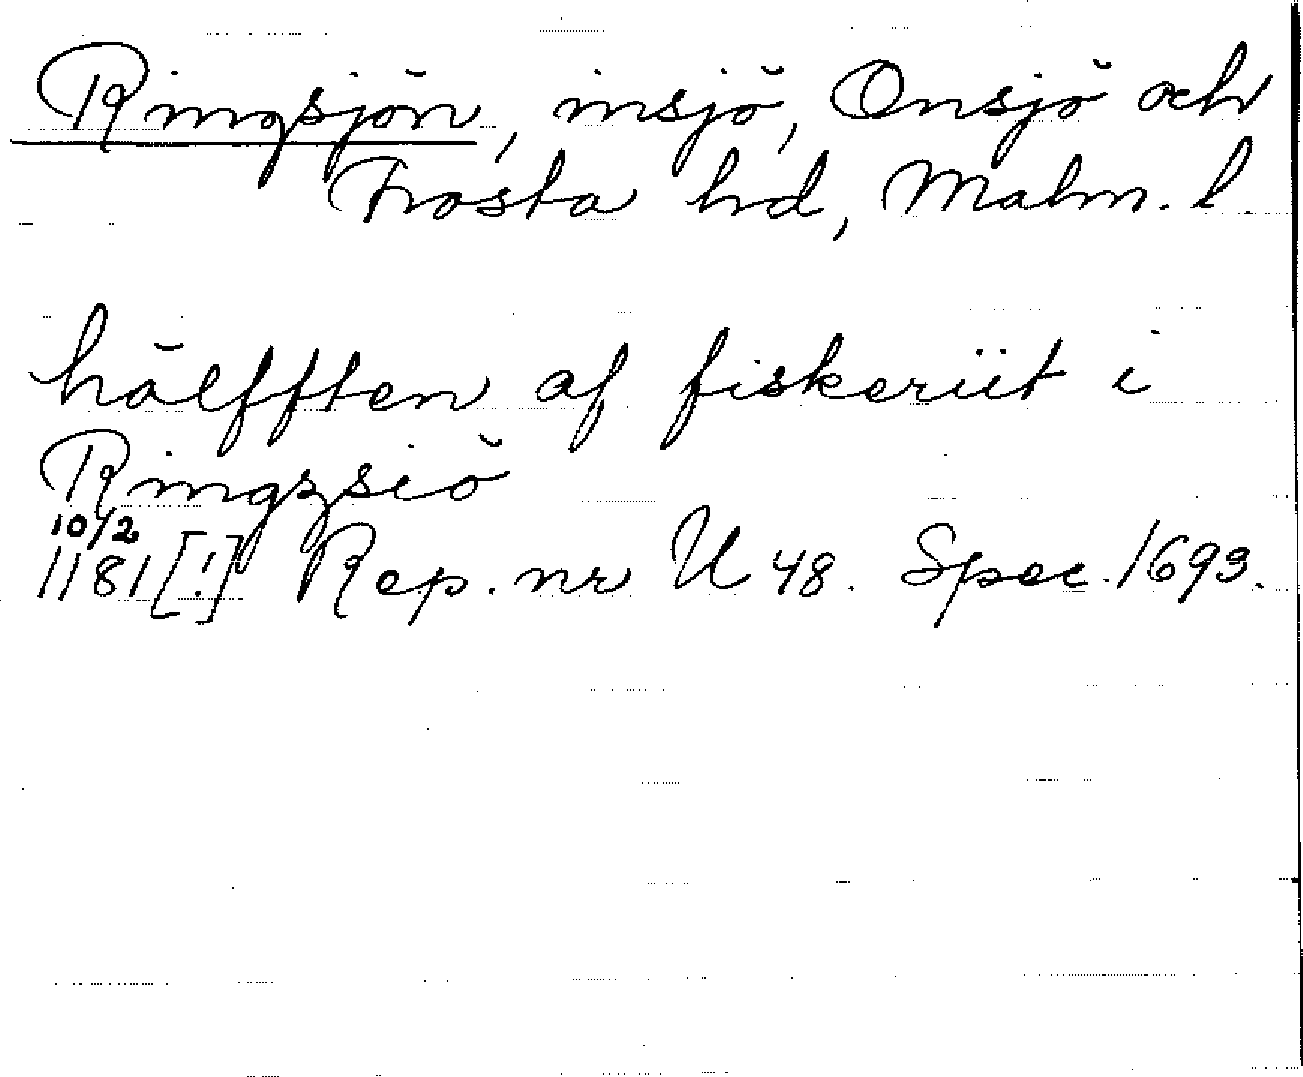 Ringsjön, insjö, Onsjö och
Frosta hd, Malm. l.
hälfften af fiskeriit i
Ringzsiö
10/2
1181[!] Rep. nr U 48. Spec. 1693.